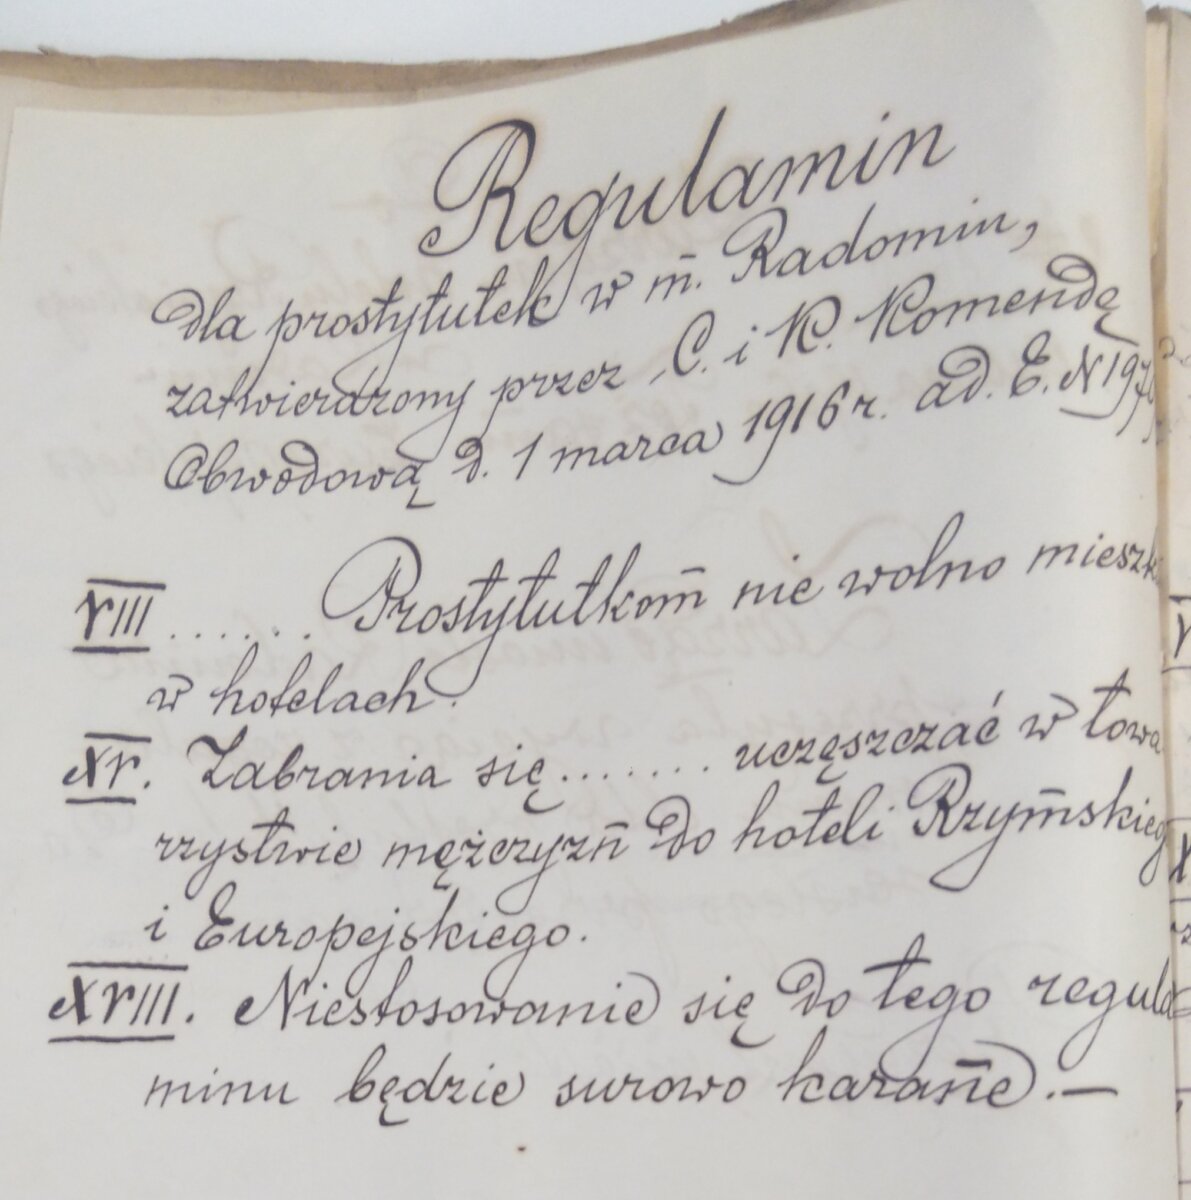 Regulamin
dla prostytutek w m. Radomiu,
zatwierdzony przez C. i K. Komendę
Obwodową d. 1 marca 1916 r. ad. E. N 197
VIII ....... Prostytutkom nie wolno mieszk
w hotelach.
XV. Zabrania się ....... uczęszczać w towa
rzystwie mężczyzn do hoteli Rzymskieg
i Europejskiego.
XVIII. Niestosowanie się do tego regula
minu będzie surowo karane. —